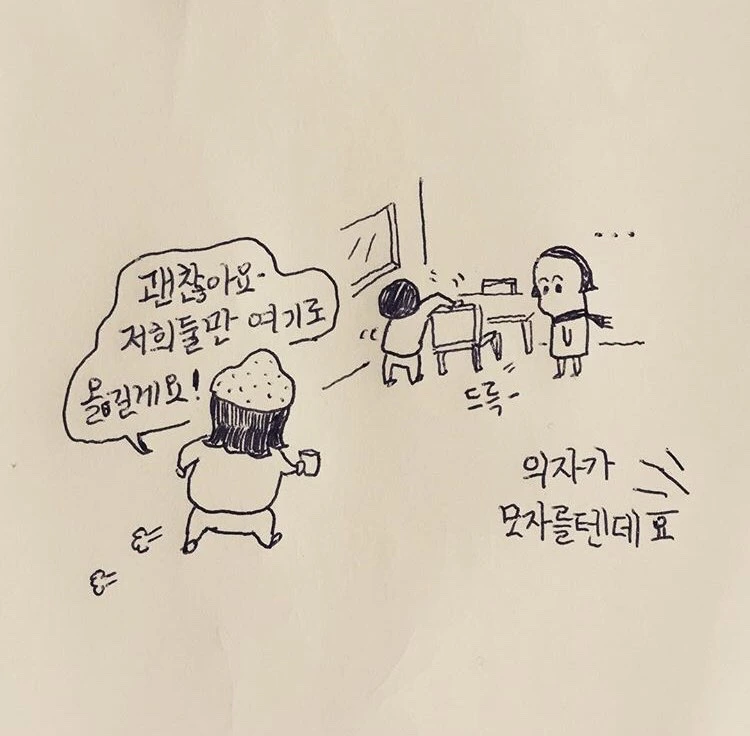 괜찮아요.
저희둘만 여기로
옮길게요!
...
드륵-
의자가
모자를텐데요